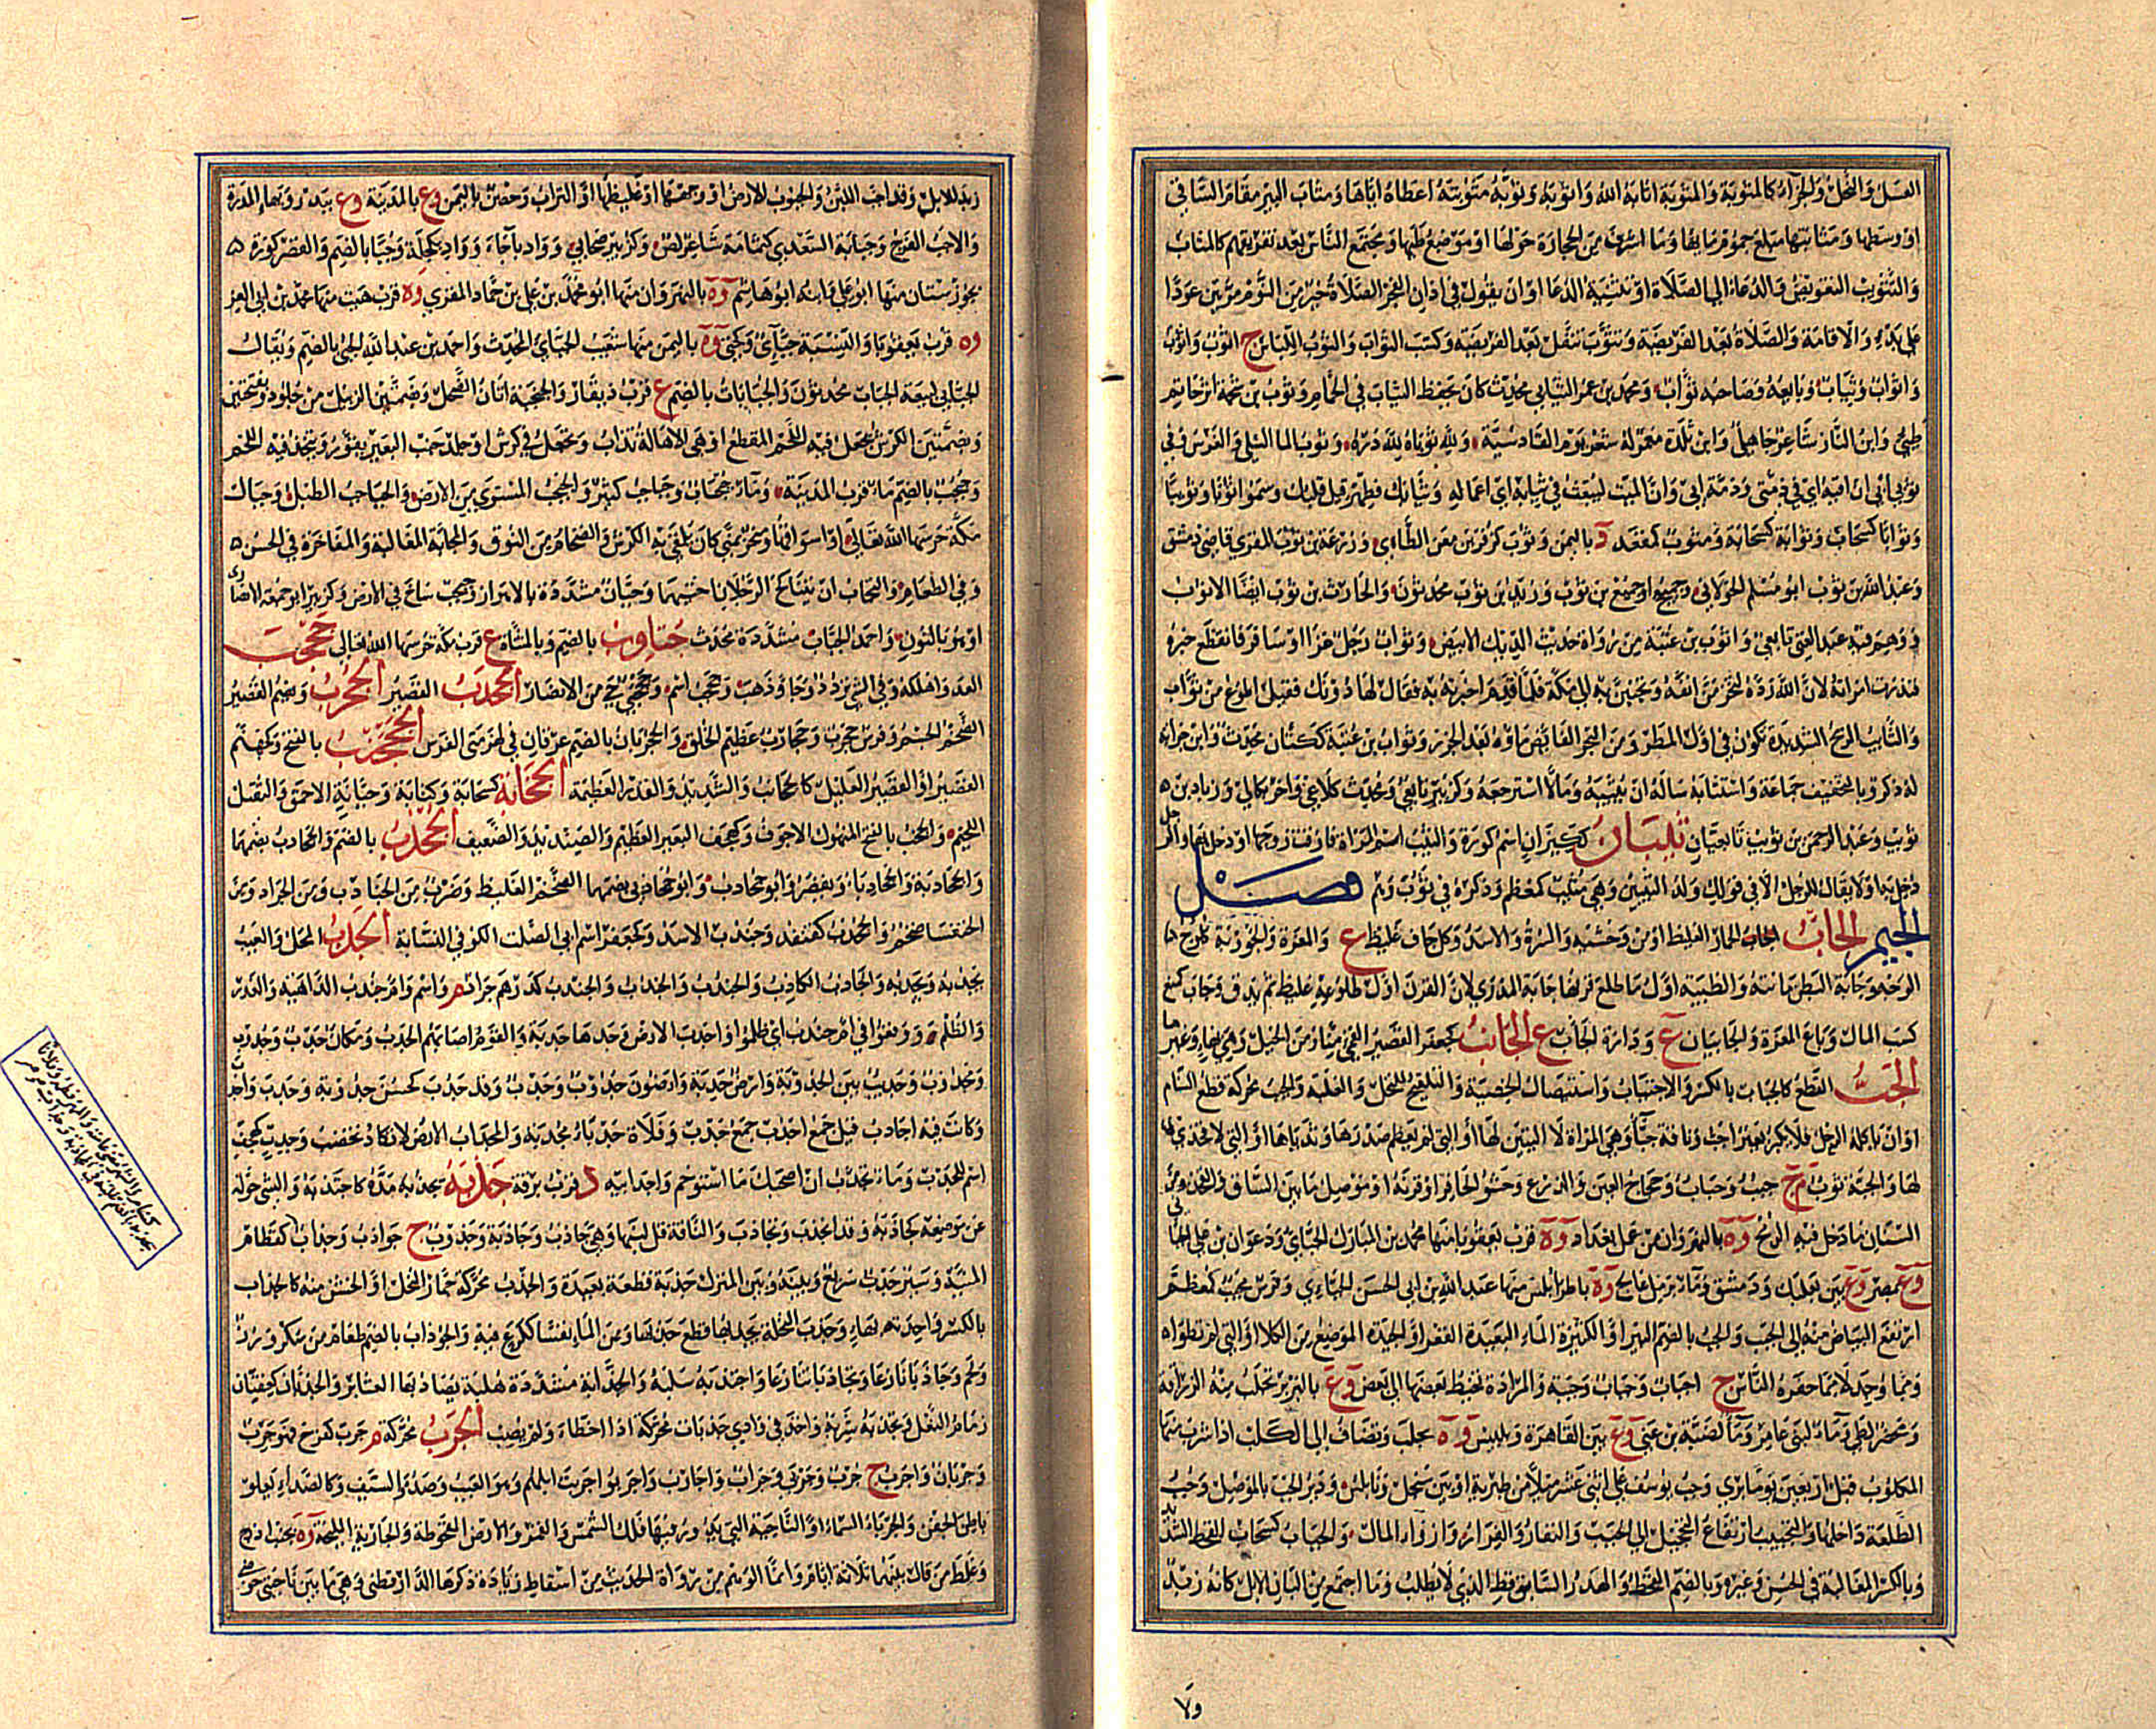 العسل والنحل والجزاء كالمثوبة والمثوبة اثابه الله واثوبه وثوبه مثوبته اعطاه اياها ومثاب البير مقام الساقي
او وسطها ومثابتها مبلغ جموم مائها وما اشرف من الحجارة حولها او موضع طيها ومجتمع الناس بعد تفرقهم كالمثاب
والتثويب التعويض والدعاء الى الصلاة او تثنية الدعا او ان يقول في اذان الفجر الصلاة خير من النوم مرتين عودا
على بدء والاقامة والصلاة بعد الفريضة وتثوب تنفل بعد الفريضة وكسب الثواب والثوب اللباس ج اثوب واثؤب
واثواب وثياب وبايعه وصاحبه ثواب ومحمد بن عمر الثيابي محدث كان يحفظ الثياب في الحمام وثوب بن شحمة اسر حاتم
طيئ وابن النار شاعر جاهلي وابن تلدة معمر له شعر يوم القادسية ولله ثوباه لله دره وثوب الما السلى والغرس وفي
ثوبي ابي ان افيه اي في ذمتي وذمة ابي وان الميت ليبعث في ثيابه اي اعماله وثيابك فطهر قيل قلبك وسموا ثوبا وثويبا
وثوابا كسحاب وثوابة كسحابة ومثوب كمقعد د باليمن وثوب كزفر بن معن الطاءي وزرعة بن ثوب المقري قاضي دمشق
وعبد الله بن ثوب ابو مسلم الخولاني وجميح او جميع بن ثوب وزيد بن ثوب محدثون والحارث بن ثوب ايضا لا اثوب
ووهم فيه عبد الغني تابعي واثوب بن عتبة من رواة حديث الديك الابيض وثواب رجل غزا او سافر فانقطع خبره
فنذرت امراته لان الله رده لتخرمن انفه وتجنبن به الى مكة فلما قدم اخبرته به فقال لها دونك فقيل اطوع من ثواب
والثايب الريح الشديدة تكون في اول المطر ومن البحر الفايض ماؤه بعد الجزر وثواب بن عتبة ككتان محدث وابن حزابة
له ذكر وبالتخفيف جماعة واستثابه ساله ان يثيبه ومالا استرجعه وكزبير تابعي ومحدث كلاعي واخر بكالي وزياد بن
ثويب وعبد الرحمن بن ثويب تابعيان ثيبان ككيزان اسم كورة والثيب اسم المراة فارقت زوجها او دخل بها والرجل
دخل به او لا يقال للرجل الا في قولك ولد الثيبين وهي مثيب كمعظم وذكره في ثوب وهم فصل
الجيم الجاب الجاب الحمار الغليظ او من وحشيه والسرة والاسد وكل جاف غليظ ع والمغرة والجؤوبة كلوح
الوجه وجابة البطن مانته والظبية اول ما طلع قرنها جابة المدرى لان القرن اول طلوعه غليظ ثم يدق وجاب كمنع
كسب المال وباع المغرة والجابيان ع ودارة الجاب ع الجانب كجعفر القصير القمي منا ومن الخيل وهي بهاء وغيرها
الجب القطع كالجباب بالكسر والاجتباب واستيصال الخصية والتلقيح للنخل والغلبة والجبب محركة قطع السنام
او ان ياكله الرحل فلا يكبر بعير اجب وناقة جبا وهي المراة لا اليتين لها او التي لم يعظم صدرها وثدياها او التي لا فخذي
لها والجبة ثوب م ج جبب وجباب وحجاج العين والدرع وحشو الحافر او قرنه او موصل ما بين الساق والفخذ ومن
السنان ما دخل فيه الرمح وة بالنهروان من عمل بغداد وة قرب بعقوبا منها محمد بن المبارك الجباي ودعوان بن علي الجباي
وع بمصر وع بين بعلبك ودمشق وماء برمل عالج وة باطرابلس منها عبد الله بن ابي الحسن الجباءي وفرس مجبب كمعظم
ارتفع البياض منه الى الجبب والجب بالضم البير او الكثيرة الماء البعيدة القعر او الجيدة الموضع من الكلا او التي لم تطو او
ومما وجد لا مما حفره الناس ج اجباب وجباب وجببة والمزادة تخيط بعضها الى بعض وع بالبربر تجلب منه الزرافة
ومحضر لطي وماء لبني عامر وماء لضبة بن غني وع بين القاهرة وبلبيس وة بحلب وتضاف الى الكلب اذا شرب منها
المكلوب قبل اربعين يوما برئ وجب يوسف على اثني عشر ميلا من طبرية او بين سنجل ونابلس ودير الجب بالموصل وجب
الطلعة داخلها والتجبيب ارتفاع التحجيل الى الجبب والنفار والفرار وارواء المال والجباب كسحاب القحط الشديد
وبالكسر المغالبة في الحسن وغيره وبالضم القحط والهدر الساقط الذي لا يطلب وما اجتمع من البان الابل كانه زبد
ولا
زبد للابل وقد اجب اللبن والجبوب الارض او وجهها او غليظها او التراب وحصن باليمن وع بالمدينة وع ببدر وبهاء المدرة
والاجب الفرج وجبابة السعدي كثمامة شاعر لص وكزبير صحابي وواد باجاء وواد بكحلة وجبا بالضم والقصر كورة
بخوزستان منها ابو علي وابنه ابو هاشم وة بالنهروان منها ابو محمد بن علي بن حماد المقري وة قرب هيت منها محمد بن ابي العز
وة قرب بعقوبا والنسبة جباي وكحتى وة باليمن منها شعيب الجباي المحدث واحمد بن عبد الله الجبي بالضم ويقال
الجبابي لبيعه الجباب محدثون والجبابات بالضم ع قرب ذي قار والجبجبة اتان الضحل وبضمتين الزبيل من جلود وبفتحتين
وبضمتين الكرش يجعل فيه اللحم المقطع او هي الاهالة تذاب وتجعل في كرش او جلد جنب البعير يقور ويتخذ فيه اللحم
وجبجب بالضم ماء قرب المدينة وماء جبجاب وجباجب كثير والجبجب المستوي من الارض والجباجب الطبل وجبال
مكة حرسها الله تعالى او اسواقها ومنحر بمنى كان يلقى به الكروش والضخام من النوق والمجابة المغالبة والمفاخرة في الحسن
وفي الطعام والتجاب ان يتناكح الرجلان اختيهما وجبان مشددة بالاهواز وجبب ساخ في الارض وكزبير ابو جمعة الانصاري
او هو بالنون واحمد الجباب مشددة محدث جتاوب بالضم وبالمثناة ع قرب مكة حرسها الله تعالى جحجب
العدو اهلكه وفي الشي تردد وجاء وذهب وجحجب اسم وجحجبى حي من الانصار الجحدب القصير الجحرب وبضم القصير
الضخم الجسم وفرس جحرب وجحارب عظيم الخلق والجحربان بالضم عرقان في لهزمتي الفرس الجحنب بالفتح وكجهنم
القصير او القصير القليل كالجحانب والشديد والقدر العظيمة الجخابة كسحابة وكتابة وجبانة الاحمق والثقيل
اللحيم والجخب بالفتح المنهوك الاجوف وكهجف البعير العظيم والصنديد والضعيف الجخدب بالضم والجخادب بضمها
والجخادبة والجخادباء ويقصر وابو جخادب وابو جخادبى بضمهما الضخم الغليظ وضرب من الجنادب ومن الجراد ومن
الخنفسا ضخم والجخدب كقنفذ وجندب الاسد وكجعفر اسم ابي الصلت الكوفي النسابة الجدب المحل والعيب
يجدبه ويجدبه والجادب الكاذب والجندب والجندب والجندب كدرهم جراد م واسم وام جندب الداهية والغدر
والظلم ووقعوا في ام جندب اي ظلموا واجدب الارض وجدها جدبة والقوم اصابهم الجدب ومكان جدب وجدوب
ومجدوب وجديب بين الجدوبة وارض جدبة وارضون جدوب وجدب وقد جدب كخشن جدوبة وجدب واجدب
وكانت فيه اجادب قيل جمع اجدب جمع جدب وفلاة جدباء مجدبة والمجداب الارض لا تكاد تخصب وجدب كهجف
اسم للجدب وماء تجدب ان اصحبك ما استوخم واجدابية د قرب برقة جذبه يجذبه مده كاجتذبه والشي حوله
عن موضعه كجاذبه وقد انجذب وتجاذب والناقة قل لبنها وهي جاذب وجاذبة وجذوب ج جواذب وجذاب كقطام
المنية وسير جذب سريع وبينه وبين المنزل جذبة قطعة بعيدة والجذب محركة جمار النخل او الخشن منه كالجذاب
بالكسر واحدته بهاء وجذب النخلة يجذبها قطع جذبها ومن الماء نفسا كرع فيه والجوذاب بالضم طعام من سكر ورز
ولحم وجاذبا نازعا وتجاذبا تنازعا واجتذبه سلبه والجذابة مشددة هلبة يصاد بها القنابر والجذبان كعفتان
زمام النعل وتجذبه شربه واخذ في وادي جذبات محركة اذا اخطاء ولم يصب الجرب محركة م جرب كفرح فهو جرب
وجربان واجرب ج جرب وجربى وجراب واجارب واجربوا جربت ابلهم وهو العيب وصدء السيف وكالصداء يعلو
باطن الجفن والجرباء السماء او الناحية التي يدور فيها فلك الشمس والقمر والارض المقحوطة والجارية المليحة وة بجنب اذرح
وغلط من قال بينهما ثلاثة ايام وانما الوهم من رواة الحديث من اسقاط زيادة ذكرها الدارقطني وهي ما بين ناحيتي حوضي